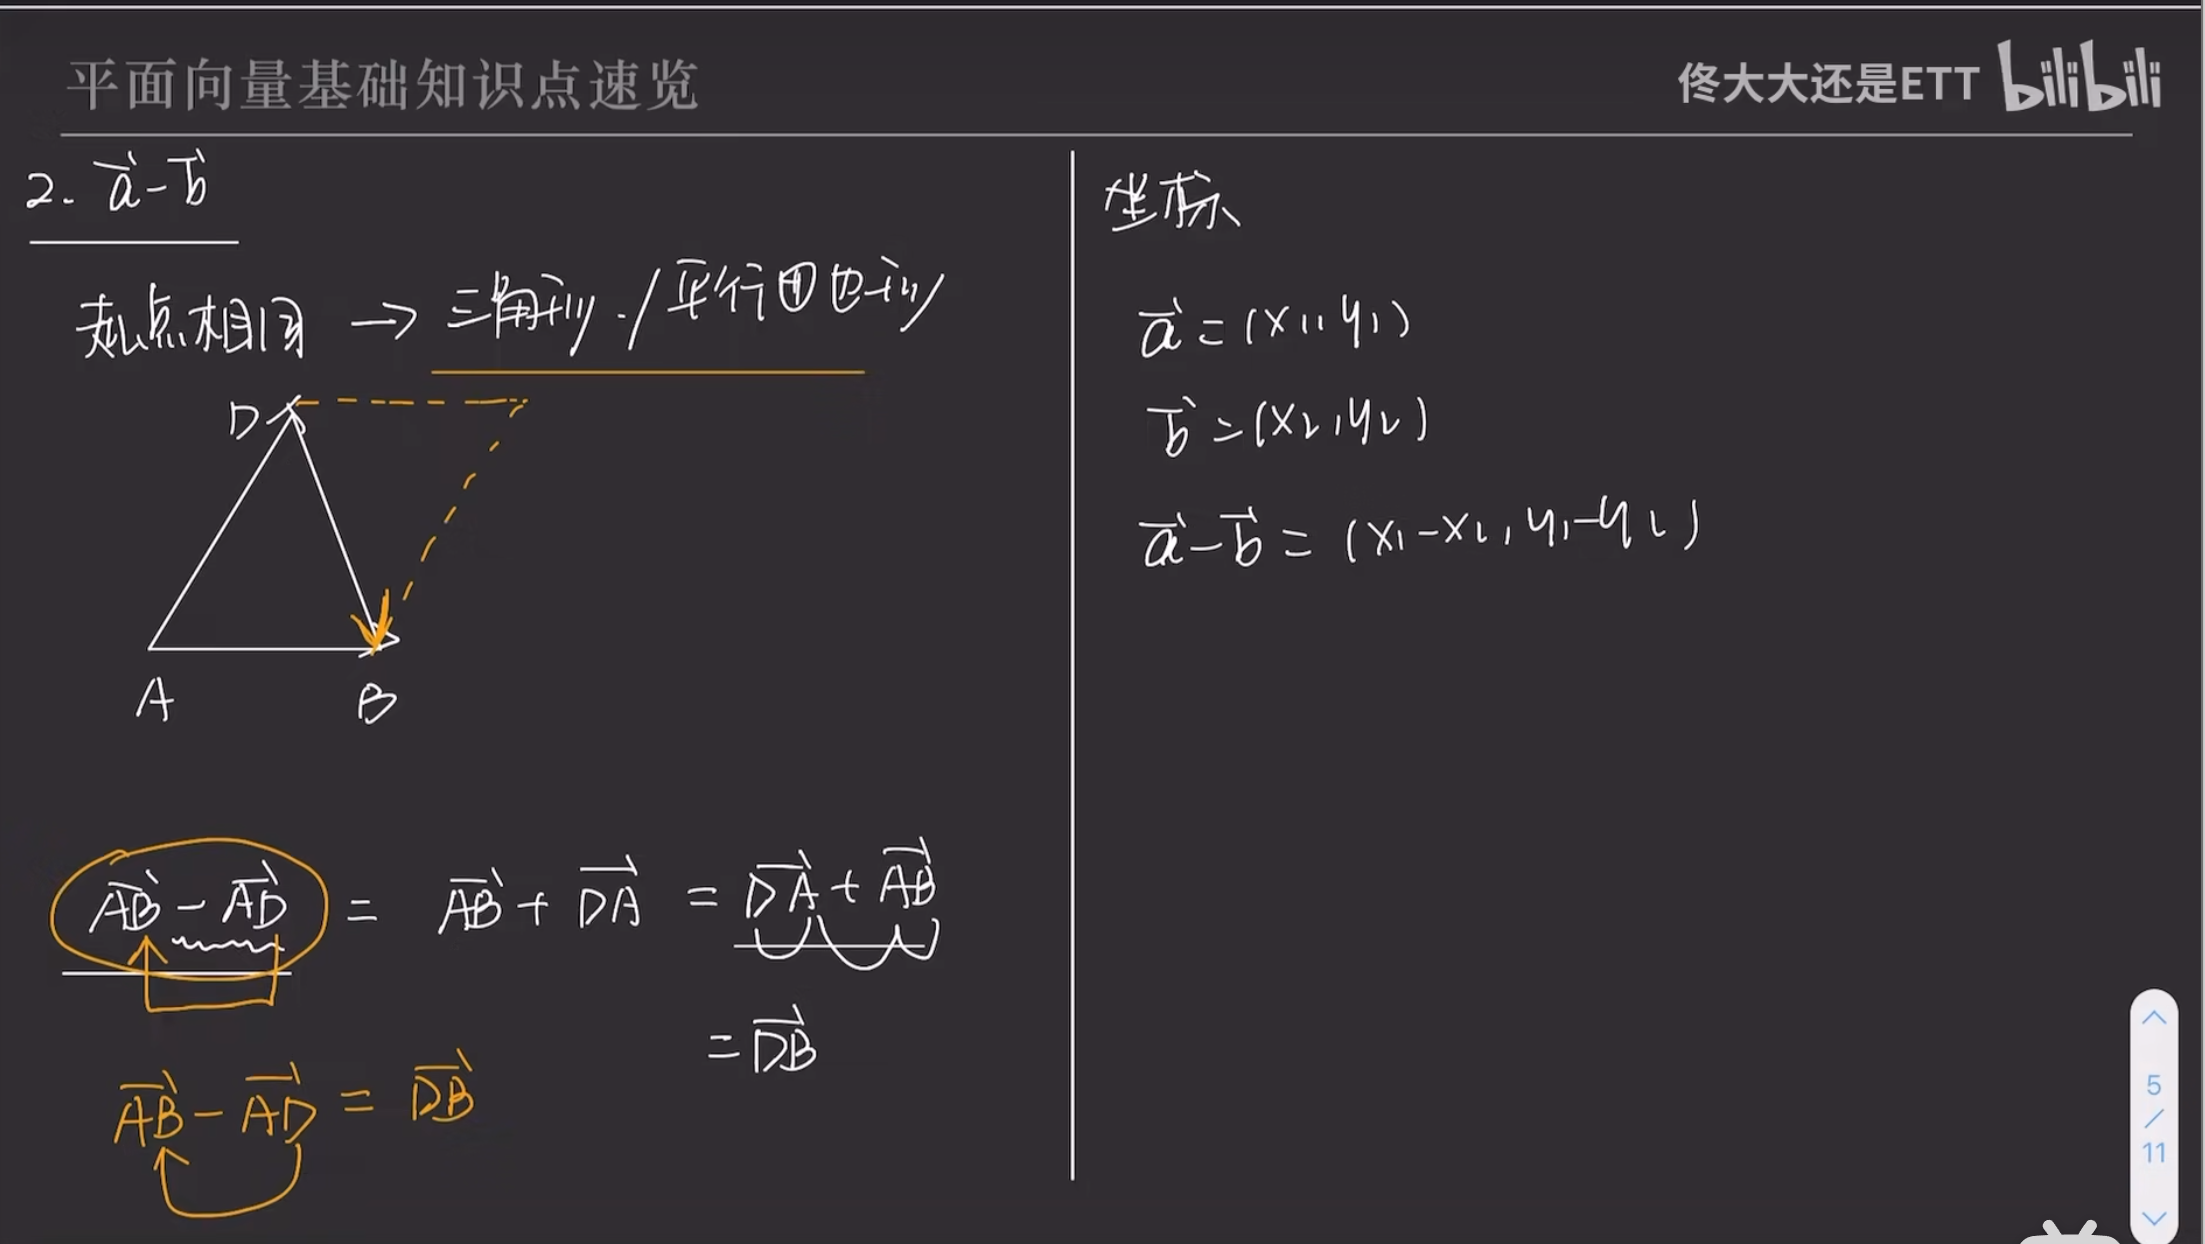 平面向量基础知识点速览
佟大大还是ETT bilibili
2. a⃗-b⃗
起点相同 → 三角形 / 平行四边形
D
A
B
AB⃗ - AD⃗ = AB⃗ + DA⃗ = DA⃗ + AB⃗
= DB⃗
AB⃗ - AD⃗ = DB⃗
坐标
a⃗ = (x₁, y₁)
b⃗ = (x₂, y₂)
a⃗ - b⃗ = (x₁-x₂, y₁-y₂)
5
/
11